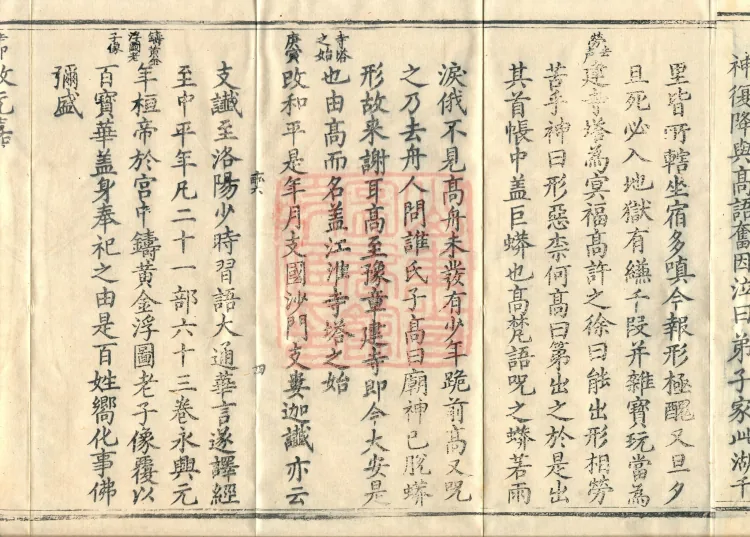 神復降與高語奮因泣曰弟子家此湖千
里皆所轄坐宿多嗔今報形極醜又旦夕
且死必入地獄有縑千段并雜寶玩當為
建寺塔為冥福高許之徐曰能出形相勞
勞去声
苦乎神曰形惡柰何高曰第出之於是出
其首帳中盖巨蟒也高梵語呪之蟒若雨
淚俄不見高舟未發有少年跪前高又呪
之乃去舟人問誰氏子高曰廟神已脫蟒
形故來謝耳高至豫章建寺即今大安是
寺塔之始
也由高而名盖江淮寺塔之始
庚寅
改和平是年月支國沙門支婁迦讖亦云
支讖至洛陽少時習語大通華言遂譯經
至中平年凡二十一部六十三卷永興元
鑄黃金浮圖老子像
年桓帝於宮中鑄黃金浮圖老子像覆以
百寶華盖身奉祀之由是百姓嚮化事佛
彌盛
四
改元嘉